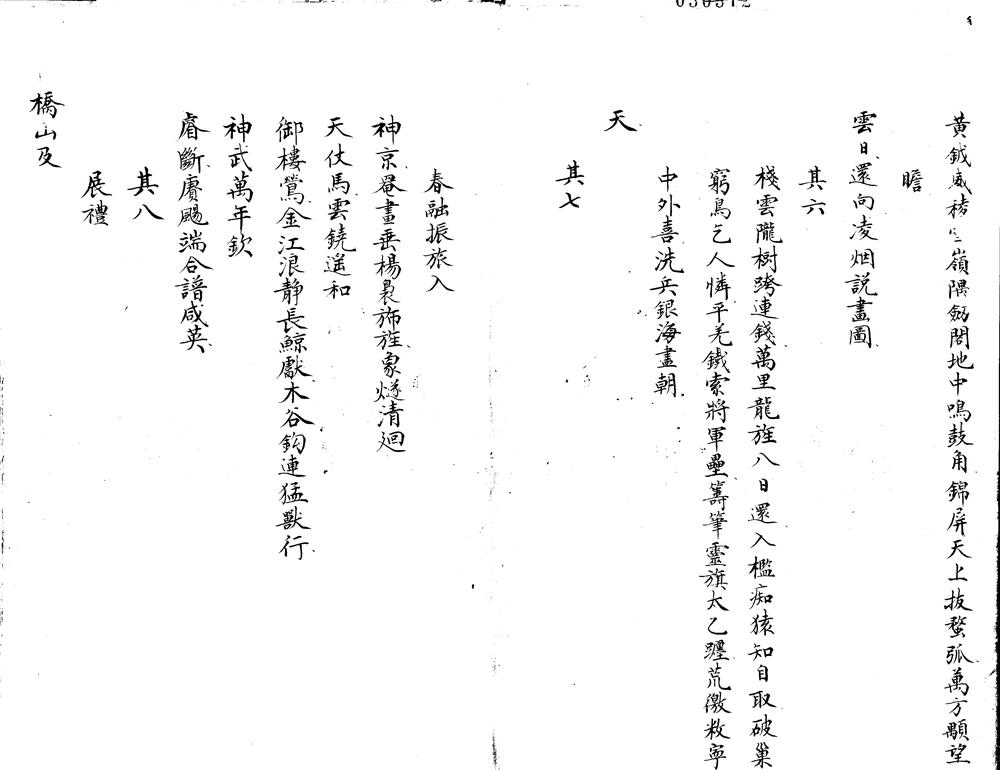 030312
黃鉞威稜嶺隅劔閣地中鳴鼓角錦屏天上拔蝥弧萬方顒望
瞻
雲日還向凌烟説畫圖
其六
棧雲隴樹跨連錢萬里龍旌八日還入檻痴猿知自取破巢
窮鳥乞人憐平羌鐵索將軍壘籌筆靈旗太乙躔荒徼敉寧
中外喜洗兵銀海盡朝
天
其七
春融振旅入
神京晷晝垂楊裊斾旌象燧清廻
天仗馬雲鐃遥和
御樓鶯金江浪靜長鯨獻木谷鈎連猛獸行
神武萬年欽
睿斷賡颺端合譜咸英
其八
展禮
橋山及